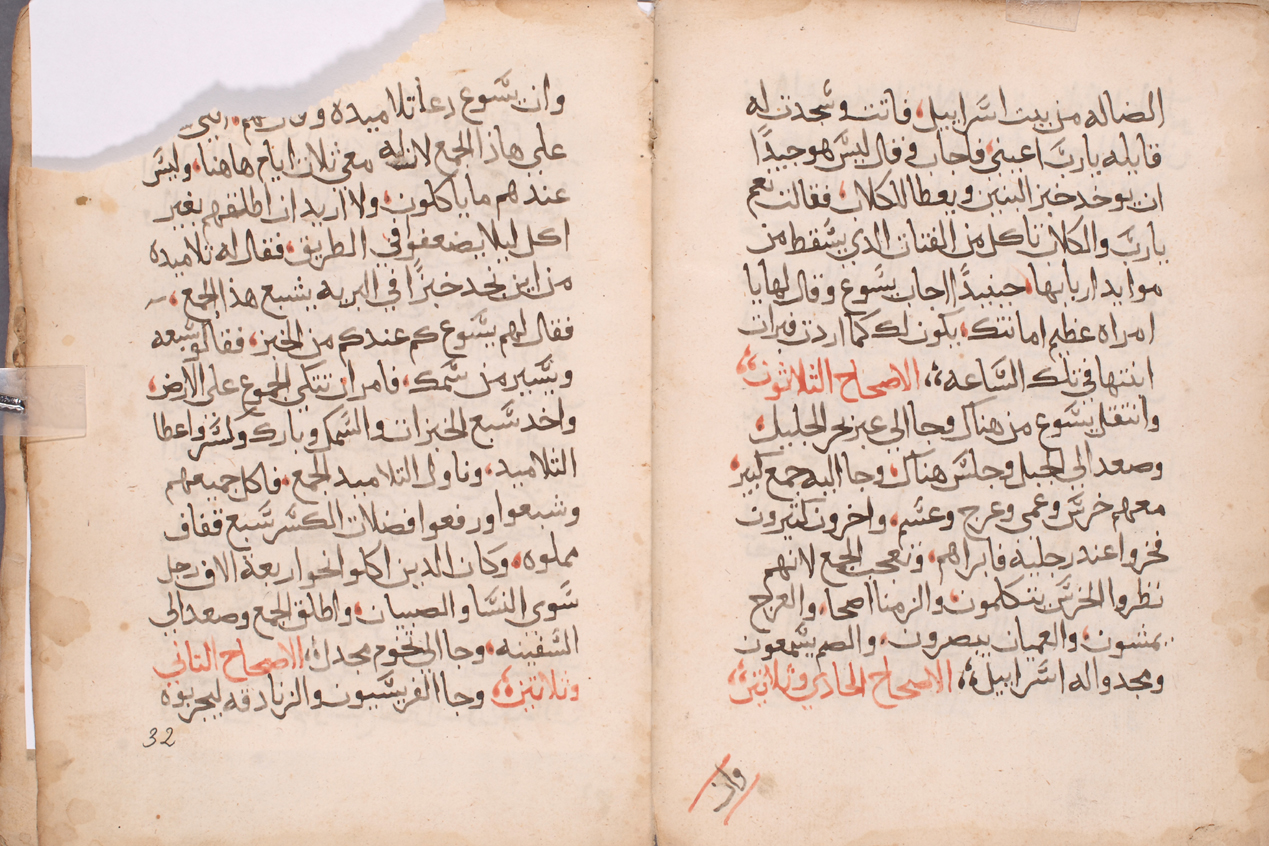 الضاله من بيت اسرابيل، فاتت وسجدت له
قايله يارب اعيني، فاجاب وقال ليس هو جيدًا
ان يوخد خبز البنين ويعطا للكلاب، فقالت نعم
يارب والكلاب تاكل من الفتات الدي يسقط من
موايد اربابها، حينيدًا اجاب يسوع وقال لها يا
امراه عظيم امانتك، يكون لك كما اردت فبرات
ابنتها في تلك الساعه، الاصحاح الثلاثون
وانتقل يسوع من هناك وجا الي عبر بحر الجليل،
وصعد الي الجبل وجلس هناك، وجا اليه جمع كبير
معهم خرس وعمي وعرج وعسم، واخرون كتيرون
فخروا عند رجليه فابراهم، وتعجب الجمع لانهم
نظروا الخرس يتكلمون، والزمنا اصحا، والعرج
يمشون، والعميان يبصرون، والصم يسمعون
ومجدوا اله اسرابيل، الاصحاح الحادي وثلاثين
وان
وان يسوع دعا تلاميده
علي هاذا الجمع لان له معي ثلات ايام هاهنا، وليس
عندهم ما ياكلون، ولا اريد ان اطلقهم بغير
اكل ليلا يضعفوا في الطريق، فقال له تلاميده
من اين نجد خبزًا في البريه يشبع هذا الجمع،
فقال لهم يسوع كم عندكم من الخبز، فقالو سبعه
ويسير من سمك، فامر ان تتكي الجموع علي الارض،
واخد سبع الخبزات والسمك وبارك وكسر واعطا
التلاميد، وناول التلاميد الجمع، فاكل جميعهم
وشبعوا ورفعوا فضلات الكسر سبع قفاف
مملوه، وكان الدين اكلوا نحو اربعة الاف رجل
سوي النسا والصبيان، واطلق الجمع وصعد الي
السفينه، وجا الي تخوم مجدل، الاصحاح التاني
وثلاتين، وجا الفريسيون والزنادقه ليجربوه
32